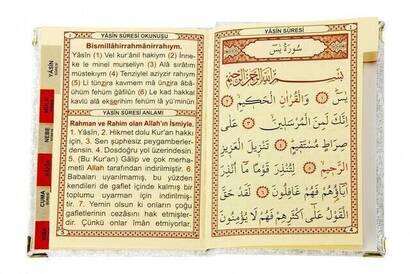 YÂSÎN SÛRESİ OKUNUŞU
Bismillâhirrahmânirrahıym.
Yâsîn (1) Vel kur'ânil hakiym (2) İnne-
ke le minel murseliyn (3) Alâ sırâtım
müstekıym (4) Tenziylel aziyzir rahıym
(5) Li tünzira kavmem mâ ünzira âbâ-
ühüm fehüm ğâfilûn (6) Le kad hakkal
kavlü alâ ekserihim fehüm lâ yü'minûn
YÂSÎN SÛRESİ ANLAMI
Rahman ve Rahim olan Allah'ın İsmiyle.
1. Yâsîn, 2. Hikmet dolu Kur'an hakkı
için, 3. Sen şüphesiz peygamberler-
densin. 4. Dosdoğru yol üzerindesin.
5. (Bu Kur'an) Gâlip ve çok merha-
metli Allah tarafından indirilmiştir. 6.
Babaları uyarılmamış, bu yüzden
kendileri de gaflet içinde kalmış bir
toplumu uyarman için indirilmiş-
tir. 7. Yemin olsun ki onların çoğu
gafletlerinin cezasını hak etmişler-
dir. Çünkü onlar îman etmiyorlar.
5
YÂSÎN
NEBE
CUMA
YÂSÎN SÛRESİ
سُورَةُ يٰسٓ
بِسْمِ اللّٰهِ الرَّحْمٰنِ الرَّحِيمِ
يٰسٓ ﴿١﴾ وَالْقُرْاٰنِ الْحَكِيمِ ﴿٢﴾
اِنَّكَ لَمِنَ الْمُرْسَلِينَ ﴿٣﴾ عَلٰى
صِرَاطٍ مُسْتَقِيمٍ ﴿٤﴾ تَنْزِيلَ الْعَزِيزِ
الرَّحِيمِ ﴿٥﴾ لِتُنْذِرَ قَوْمًا مَٓا اُنْذِرَ
اٰبَٓاؤُهُمْ فَهُمْ غَافِلُونَ ﴿٦﴾ لَقَدْ حَقَّ
الْقَوْلُ عَلٰٓى اَكْثَرِهِمْ فَهُمْ لَا يُؤْمِنُونَ
4